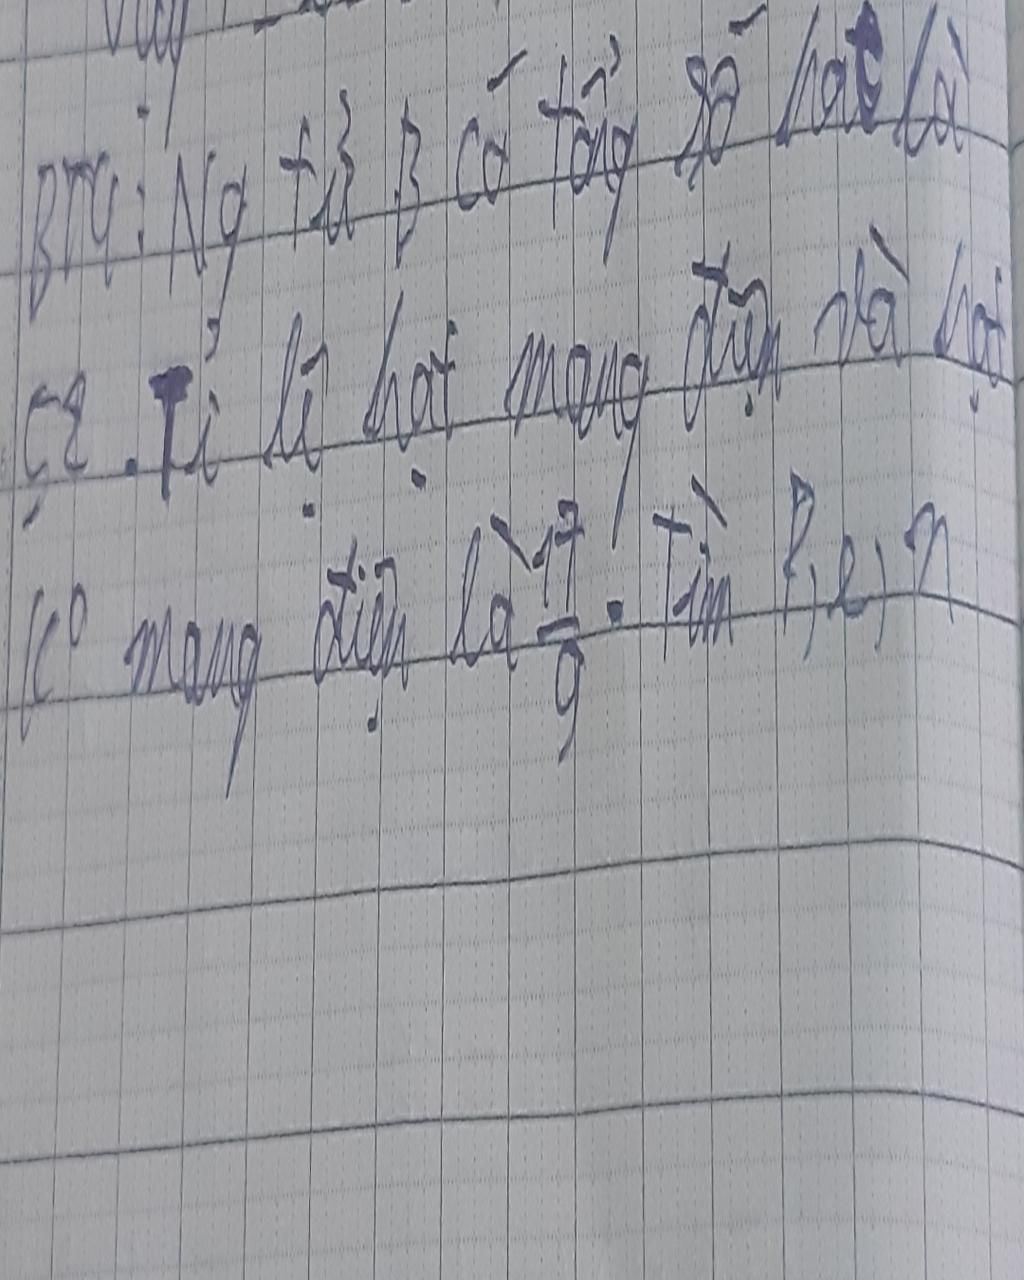 BT4: Ng tử B có tổng số hạt là
52. Tỉ lệ hạt mang điện và hạt
K⁰ mang điện là 17/9. Tìm P, e, n